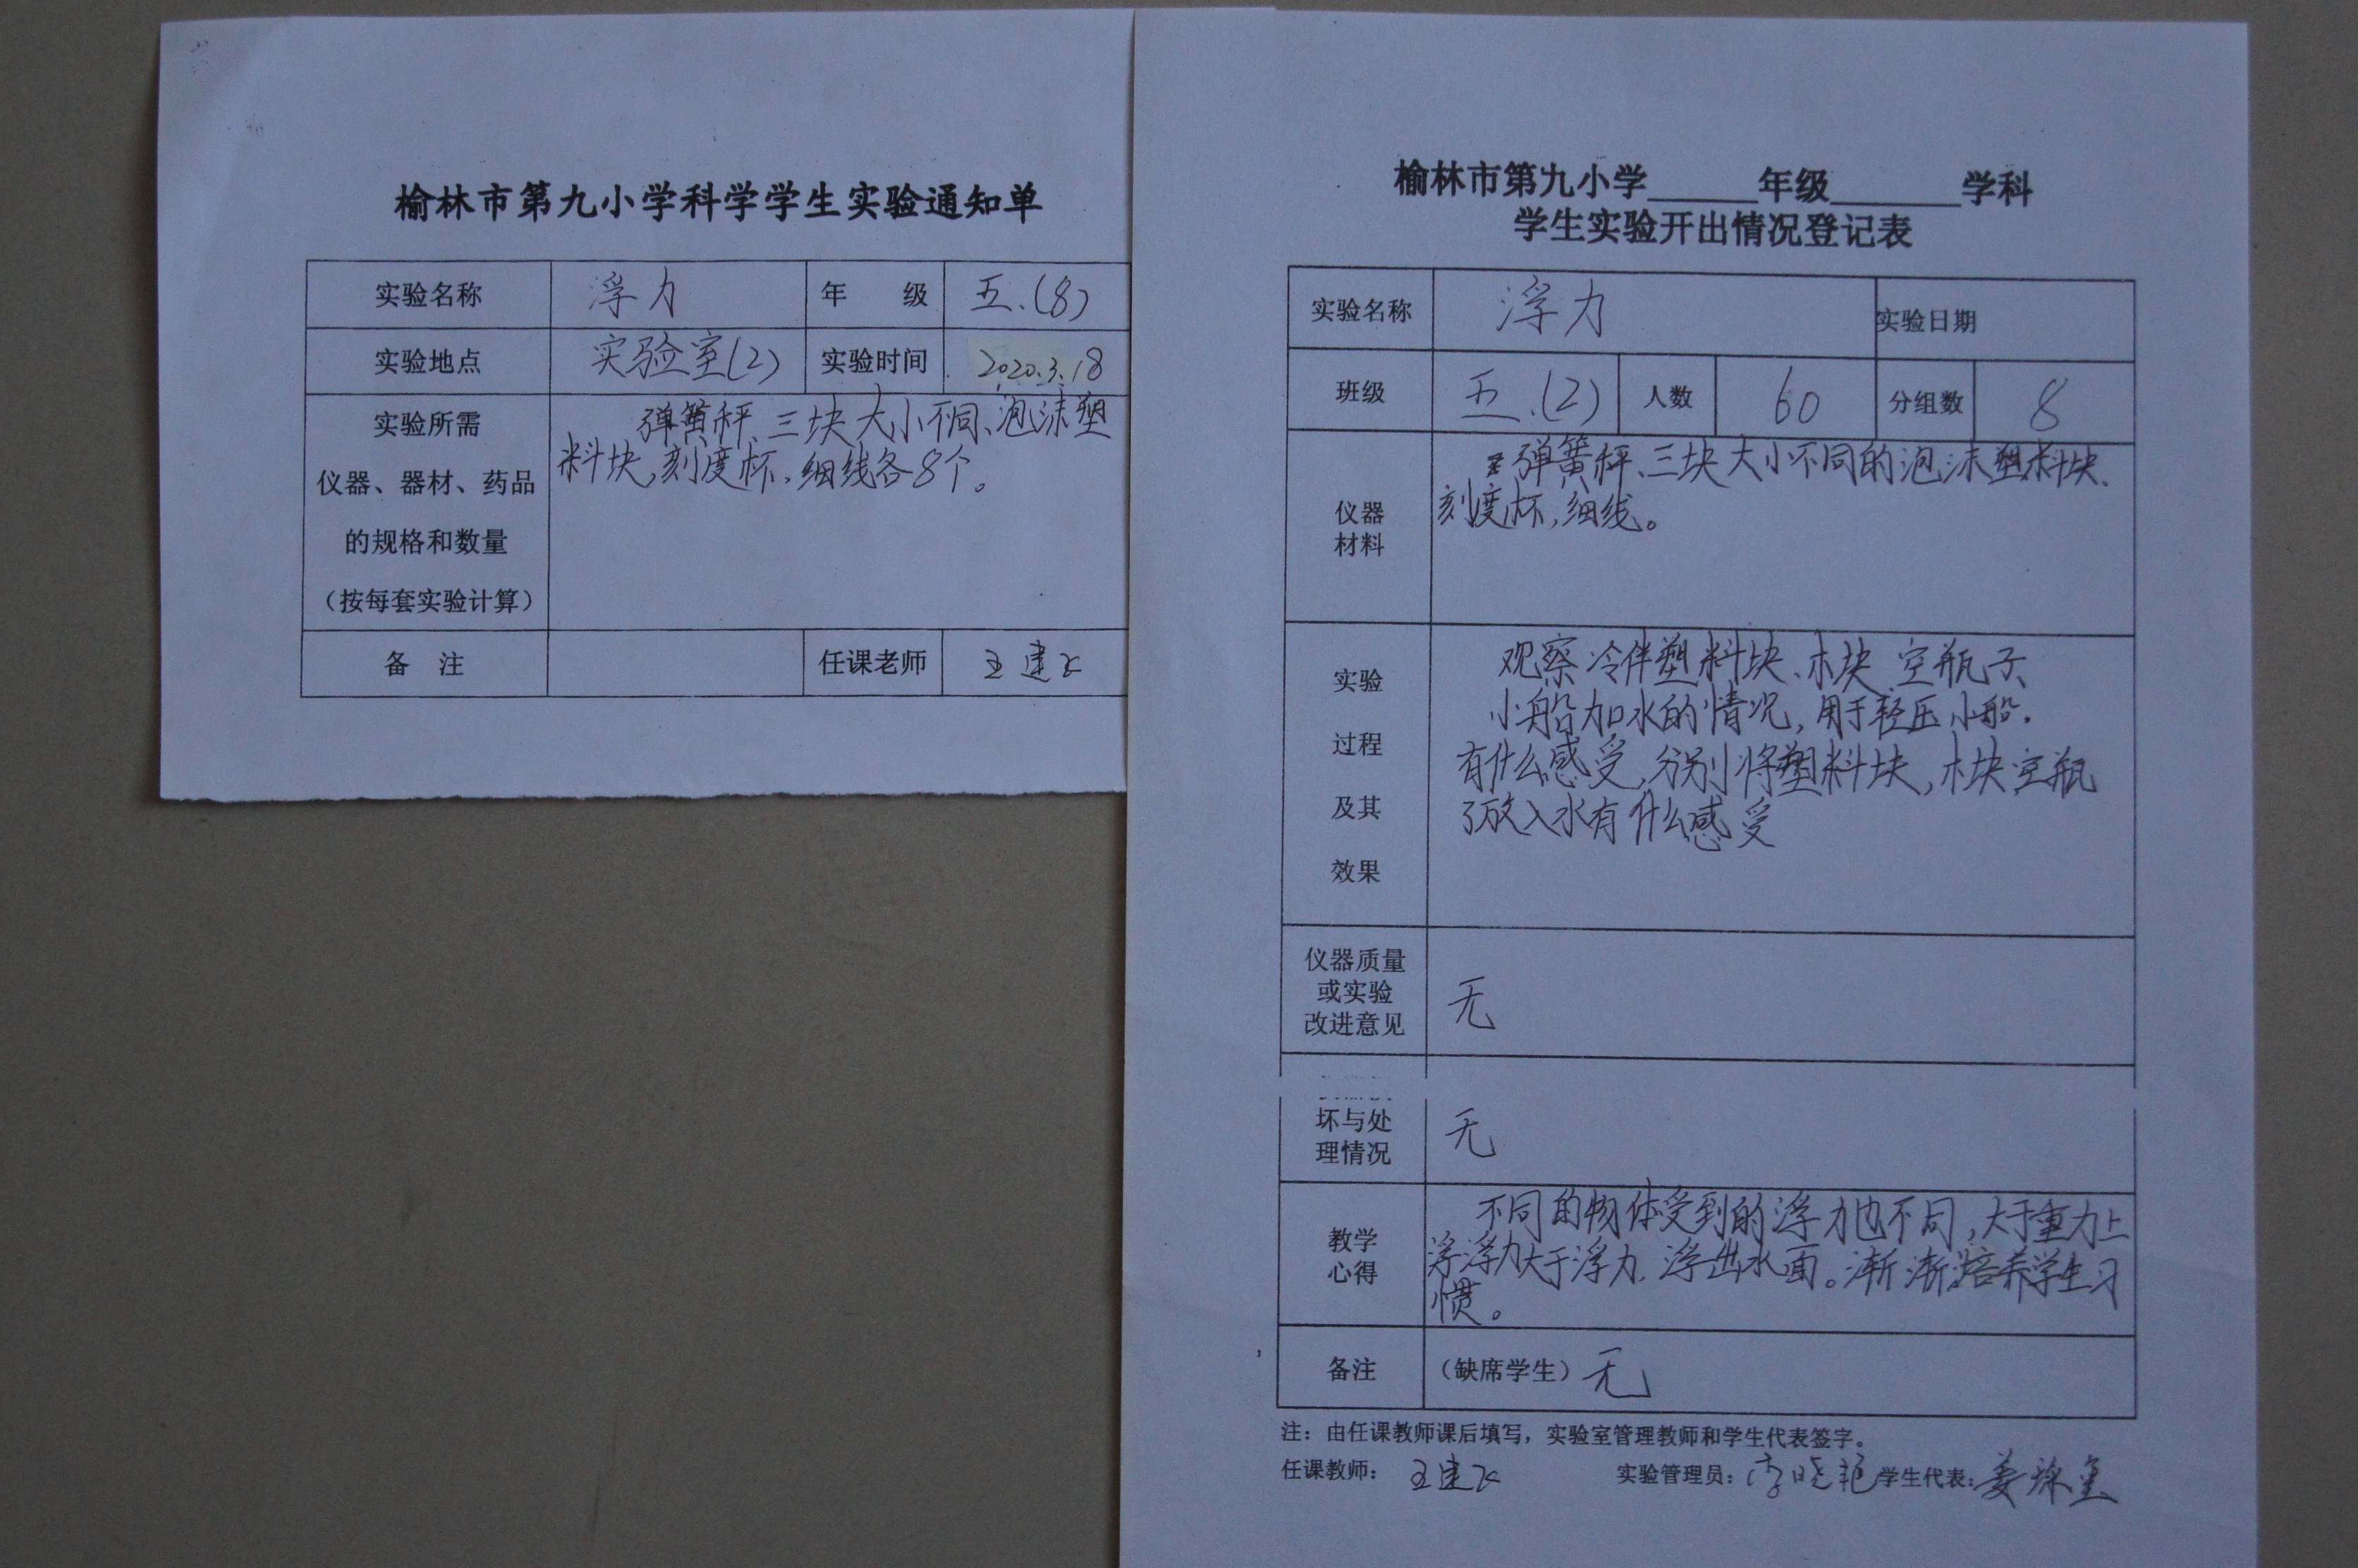 榆林市第九小学科学学生实验通知单
实验名称 浮力 年 级 五.(8)
实验地点 实验室(2) 实验时间 2020.3.18
实验所需
仪器、器材、药品
的规格和数量
(按每套实验计算)
弹簧秤、三块大小不同、泡沫塑
料块,刻度杯,细线各8个。
备 注 任课老师 王建飞
榆林市第九小学______年级_______学科
学生实验开出情况登记表
实验名称 浮力 实验日期
班级 五.(2) 人数 60 分组数 8
仪器
材料
弹簧秤、三块大小不同的泡沫塑料块、
刻度杯,细线。
实验
过程
及其
效果
观察 塑料块、木块、空瓶子、
小船加水的情况,用手轻压小船.
有什么感受,分别将塑料块,木块空瓶
子放入水有什么感受
仪器质量
或实验
改进意见
无
坏与处
理情况
无
教学
心得
不同的物体受到的浮力也不同,大于重力上
浮浮力大于浮力,浮出水面。渐渐培养学生习
惯。
备注 (缺席学生) 无
注:由任课教师课后填写,实验室管理教师和学生代表签字。
任课教师: 王建飞 实验管理员: 李晓艳 学生代表: 姜